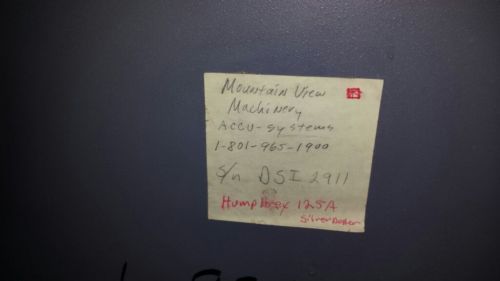 Mountain View
Machinery
Accu-systems
1-801-965-1900
S/n DSI 2911
Humphrey 125A